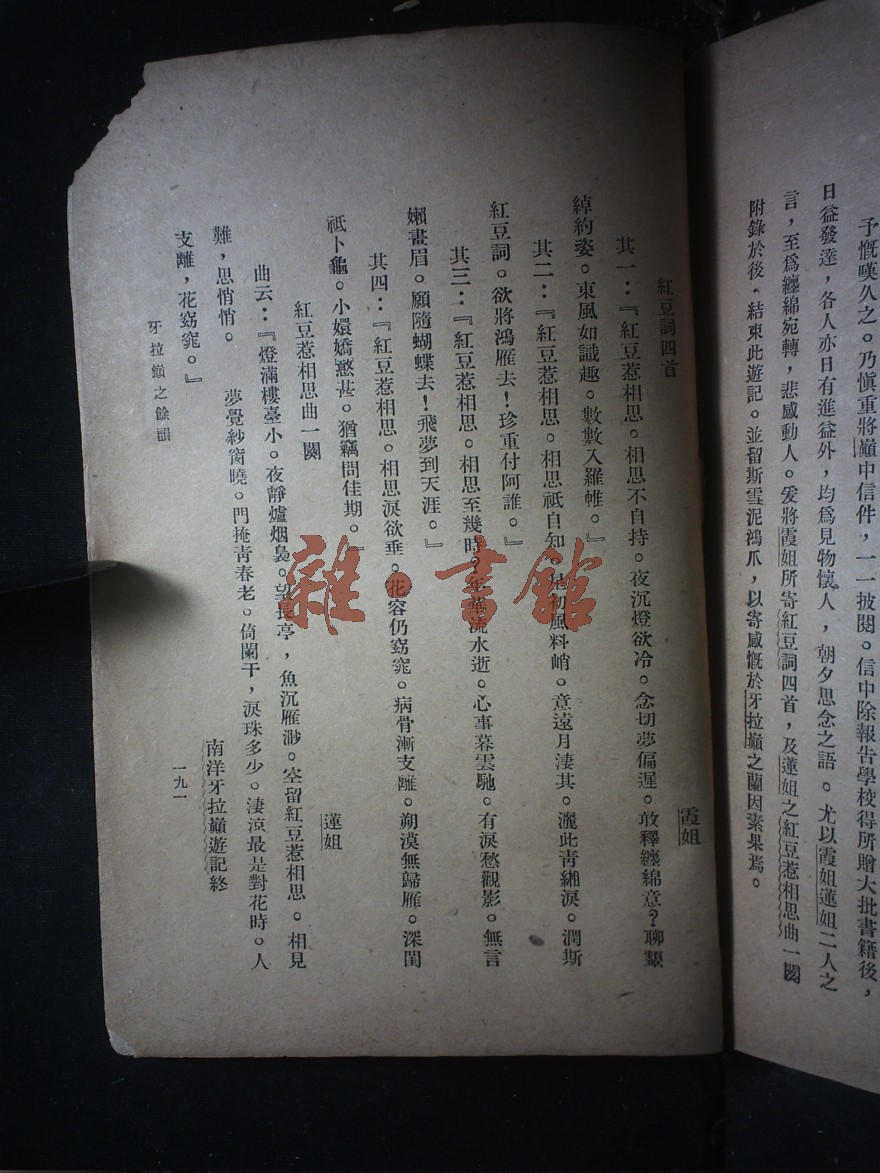 予慨嘆久之。乃慎重將巔中信件，一一披閱。信中除報告學校得所贈大批書籍後，
日益發達，各人亦日有進益外，均爲見物懷人，朝夕思念之語。尤以霞姐蓮姐二人之
言，至爲纏綿宛轉，悲感動人。爰將霞姐所寄紅豆詞四首，及蓮姐之紅豆惹相思曲一闋
附錄於後，結束此遊記。並留斯雪泥鴻爪，以寄感慨於牙拉巔之蘭因素果焉。
紅豆詞四首 霞姐
其一：『紅豆惹相思。相思不自持。夜沉燈欲冷。念切夢偏遲。敢釋纏綿意？聊
綽約姿。東風如識趣。數數入羅帷。』
其二：『紅豆惹相思。相思祇自知。是初風料峭。意遠月淒其。灑此青緗淚。潤斯
紅豆詞。欲將鴻雁去！珍重付阿誰。』
其三：『紅豆惹相思。相思至幾時？年華流水逝。心事暮雲馳。有淚愁觀影。無言
嬾畫眉。願隨蝴蝶去！飛夢到天涯。』
其四：『紅豆惹相思。相思淚欲垂。花容仍窈窕。病骨漸支離。朔漠無歸雁。深閨
祇卜龜。小嬛嬌憨甚。猶竊問佳期。』
紅豆惹相思曲一闋 蓮姐
曲云：『燈滿樓臺小。夜靜爐烟裊。望長亭，魚沉雁渺。空留紅豆惹相思。相見
難，思悄悄。 夢覺紗窗曉。門掩靑春老。倚闌干，淚珠多少。淒涼最是對花時。人
支離，花窈窕。』
南洋牙拉巔遊記終
牙拉巔之餘韻 一九一
雜·書館